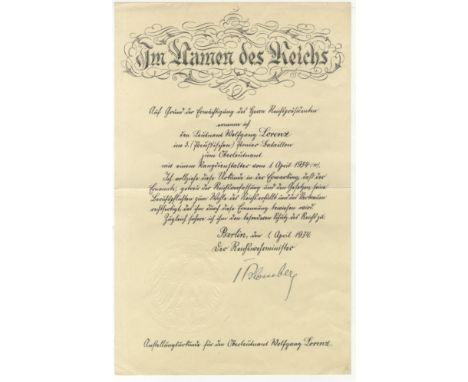 Im Namen des Reichs
Auf Grund der Ermächtigung des Herrn Reichspräsidenten
ernenne ich
den Leutnant Wolfgang Lorenz
im 3. (Preußischen) Pionier-Bataillon
zum Oberleutnant
mit einem Rangdienstalter vom 1. April 1934
Ich vollziehe diese Urkunde in der Erwartung, daß der
Ernannte, getreu der Reichsverfassung und den Gesetzen, seine
Berufspflichten zum Wohle des Reichs erfüllt und das Vertrauen
rechtfertigt, das ihm durch diese Ernennung bewiesen wird.
Zugleich sichere ich ihm den besonderen Schutz des Reichs zu.
Berlin, den 1. April 1934
Der Reichswehrminister
Blomberg
Anstellungsurkunde für den Oberleutnant Wolfgang Lorenz.